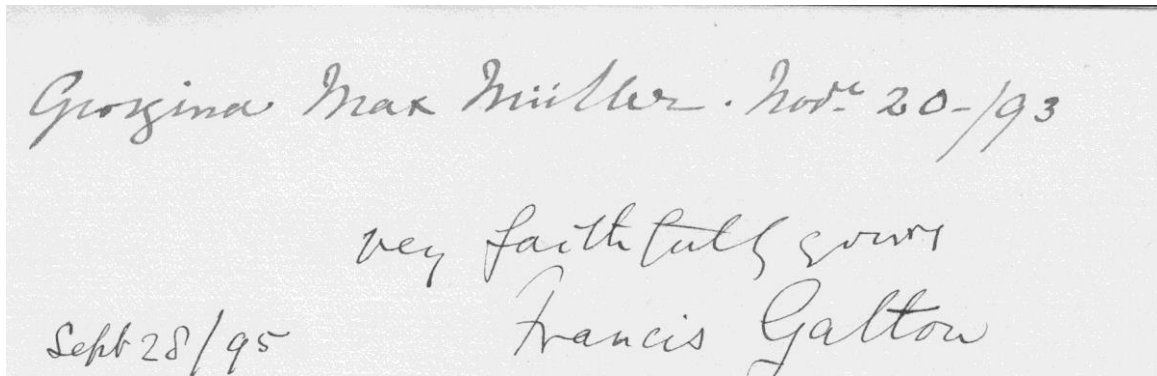 Georgina Max Müller. Novr 20-/93
very faithfully yours
Sept 28/95 Francis Galton